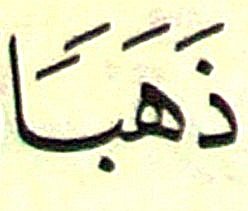 ذَهَبَا